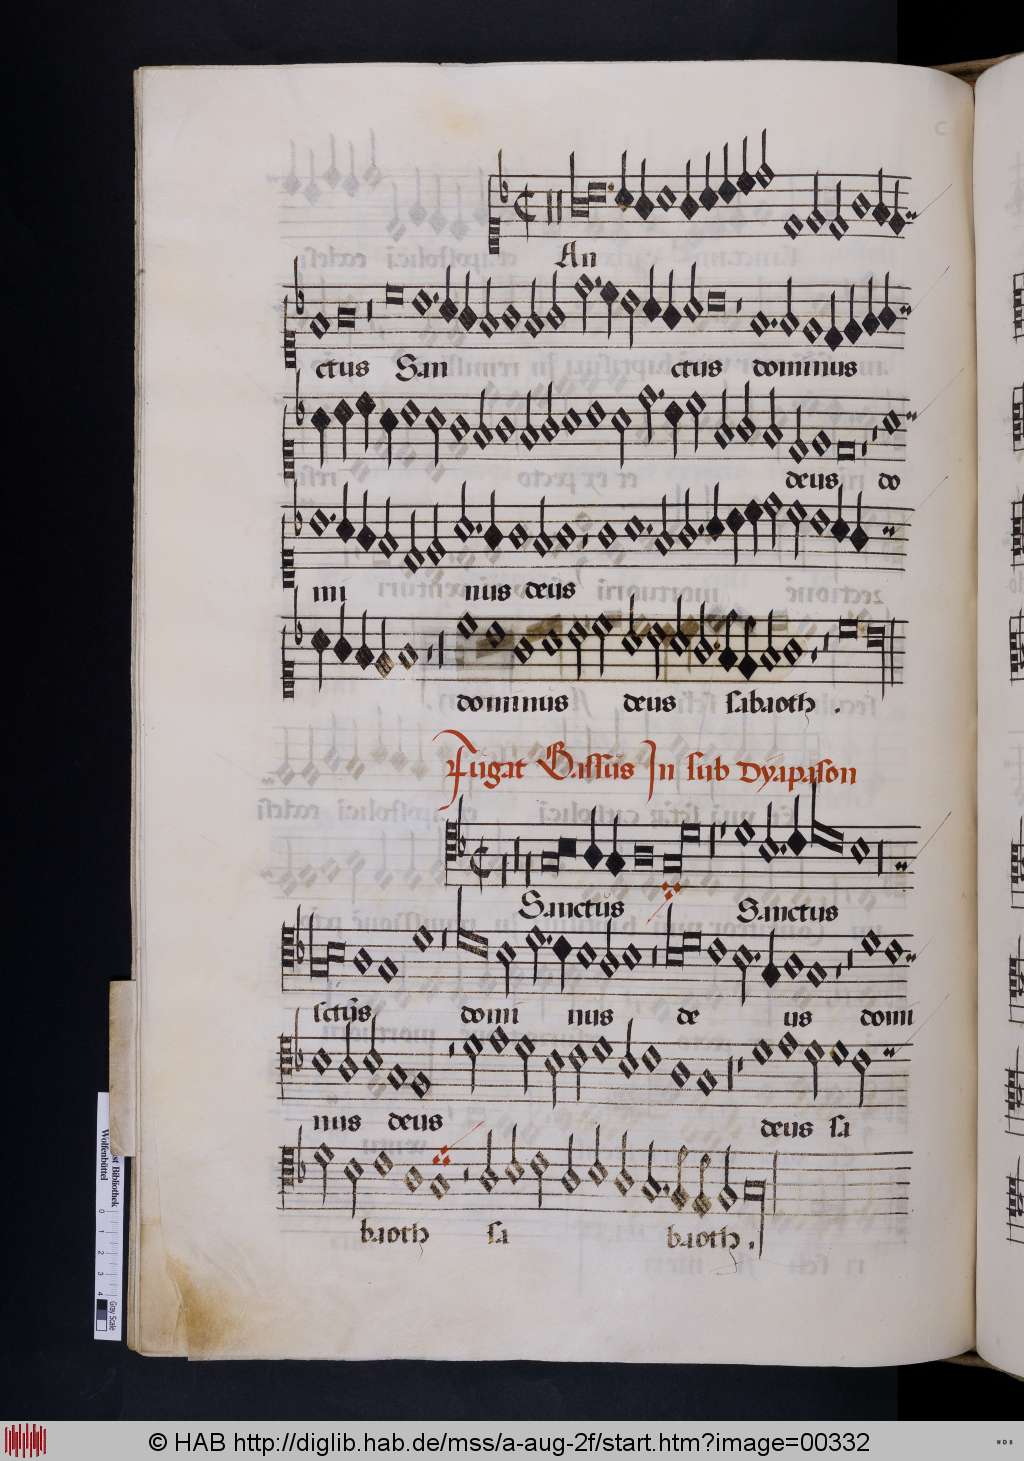 An
ctus San ctus dominus
deus do
mi nus deus
dominus deus sabaoth .
Fugat Bassus In sub Dyapason
Sanctus Sanctus
sctus domi nus de us domi
nus deus deus sa
baoth sa baoth .
Wolfenbüttel
0 1 2 3 4
Gray Scale
© HAB http://diglib.hab.de/mss/a-aug-2f/start.htm?image=00332